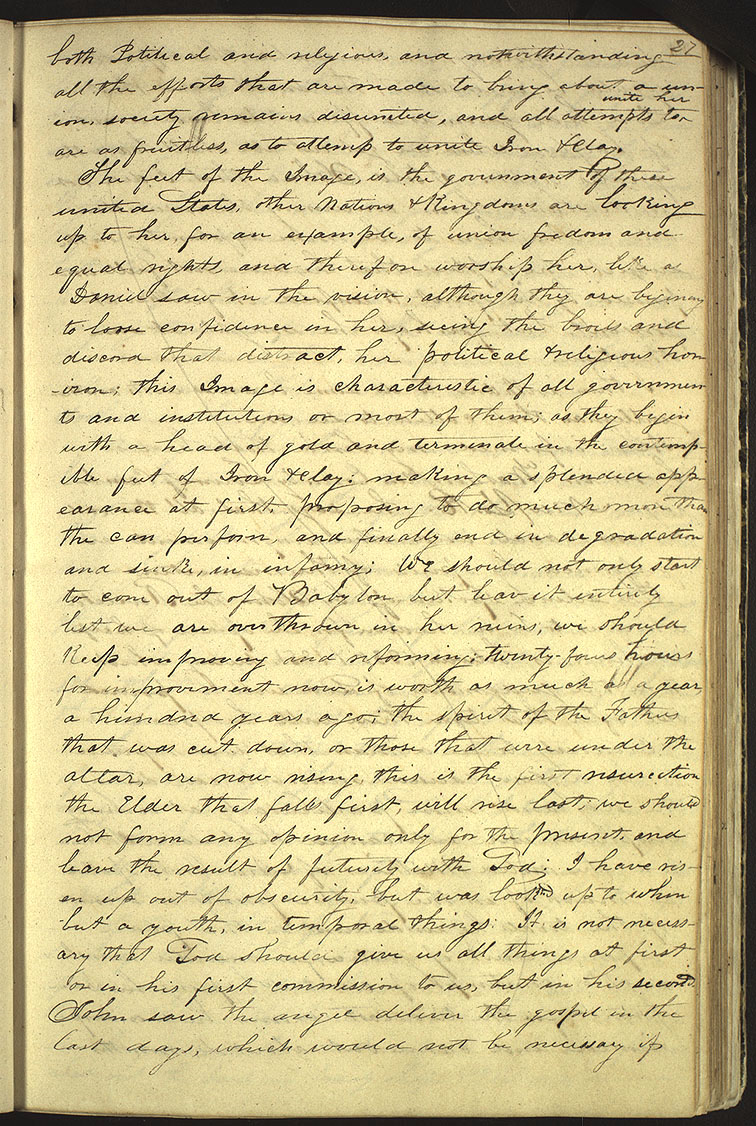 27
both Political and religious, and notwithstanding
all the efforts that are made to bring about a un-
ion, society remains disunited, and all attempts to unite her
are as fruitless, as to attemp to unite Iron & Clay.
The feet of the Image, is the government of these
united States, other Nations & Kingdoms are looking
up to her, for an example, of union fredom and
equal rights, and therefore worship her, like as
Daniel saw in the vision, although they are begining
to loose confidence in her, seeing the broils and
discord that distract, her political & religious hor-
-izon; this Image is characteristic of all governmen-
ts and institutions or most of them; as they begin
with a head of gold and terminate in the contemp-
ible feet of Iron & Clay: making a splended app-
earance at first, proposing to do much more than
the can perform, and finally end in degradation
and sink, in infamy; We should not only start
to come out of Babylon but leav it entirely
lest we are overthrown in her ruins, we should
keep improving and reforming, twenty-four hours
for improvement now is worth as much as a year
a hundred years ago; the spirit of the Fathers
that was cut down, or those that were under the
altar, are now rising, this is the first resurection
the Elder that falls first, will rise last; we should
not form any opinion only for the present, and
leave the result of futurity with God: I have ris-
en up out of obscurity, but was looked up to when
but a youth, in temporal things: It is not necess-
ary that God should give us all things at first
or in his first commission to us, but in his second.
John saw the angel deliver the gospel in the
last days, which would not be necessary if